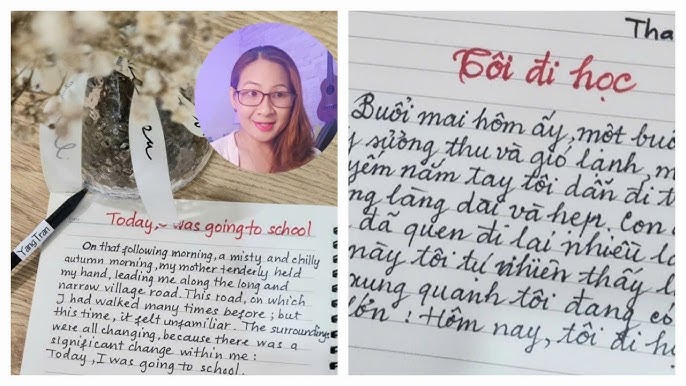 YangTran
Today, I was going to school
On that following morning, a misty and chilly
autumn morning, my mother tenderly held
my hand, leading me along the long and
narrow village road. This road, on which
I had walked many times before; but
this time, it felt unfamiliar. The surroundings
were all changing, because there was a
significant change within me:
Today, I was going to school.
Tha
Tôi đi học
Buổi mai hôm ấy, một buổ
sương thu và gió lạnh, m
yếm nắm tay tôi dẫn đi t
ng làng dài và hẹp. Con
đã quen đi lại nhiều l
này tôi tự nhiên thấy l
xung quanh tôi đang có
lớn : Hôm nay, tôi đi h